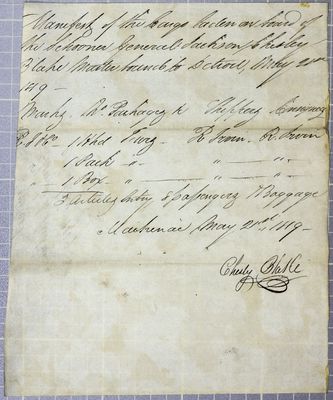 Manifest of the Cargo laden on board of
the Schooner General Jackson, Chesley
Blake Master bound to Detroit, May 21st
1819 –
Marks No. Packages Shippers
1 Hhd R. Irwin R. Irwin
1 Pack " " "
1 Box " " "
3 articles only & passengers Baggage
Mackinac May 21st, 1819 –
Chesley Blake